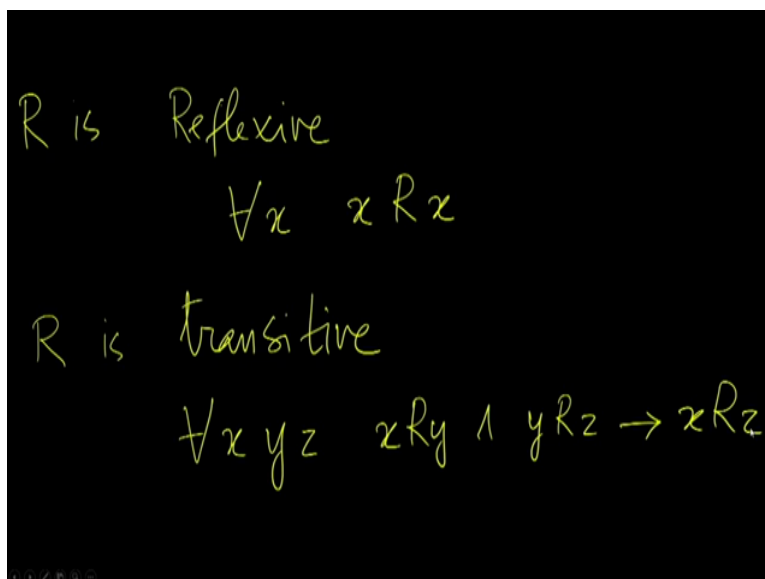 R is Reflexive
∀x xRx
R is transitive
∀xyz xRy ∧ yRz → xRz